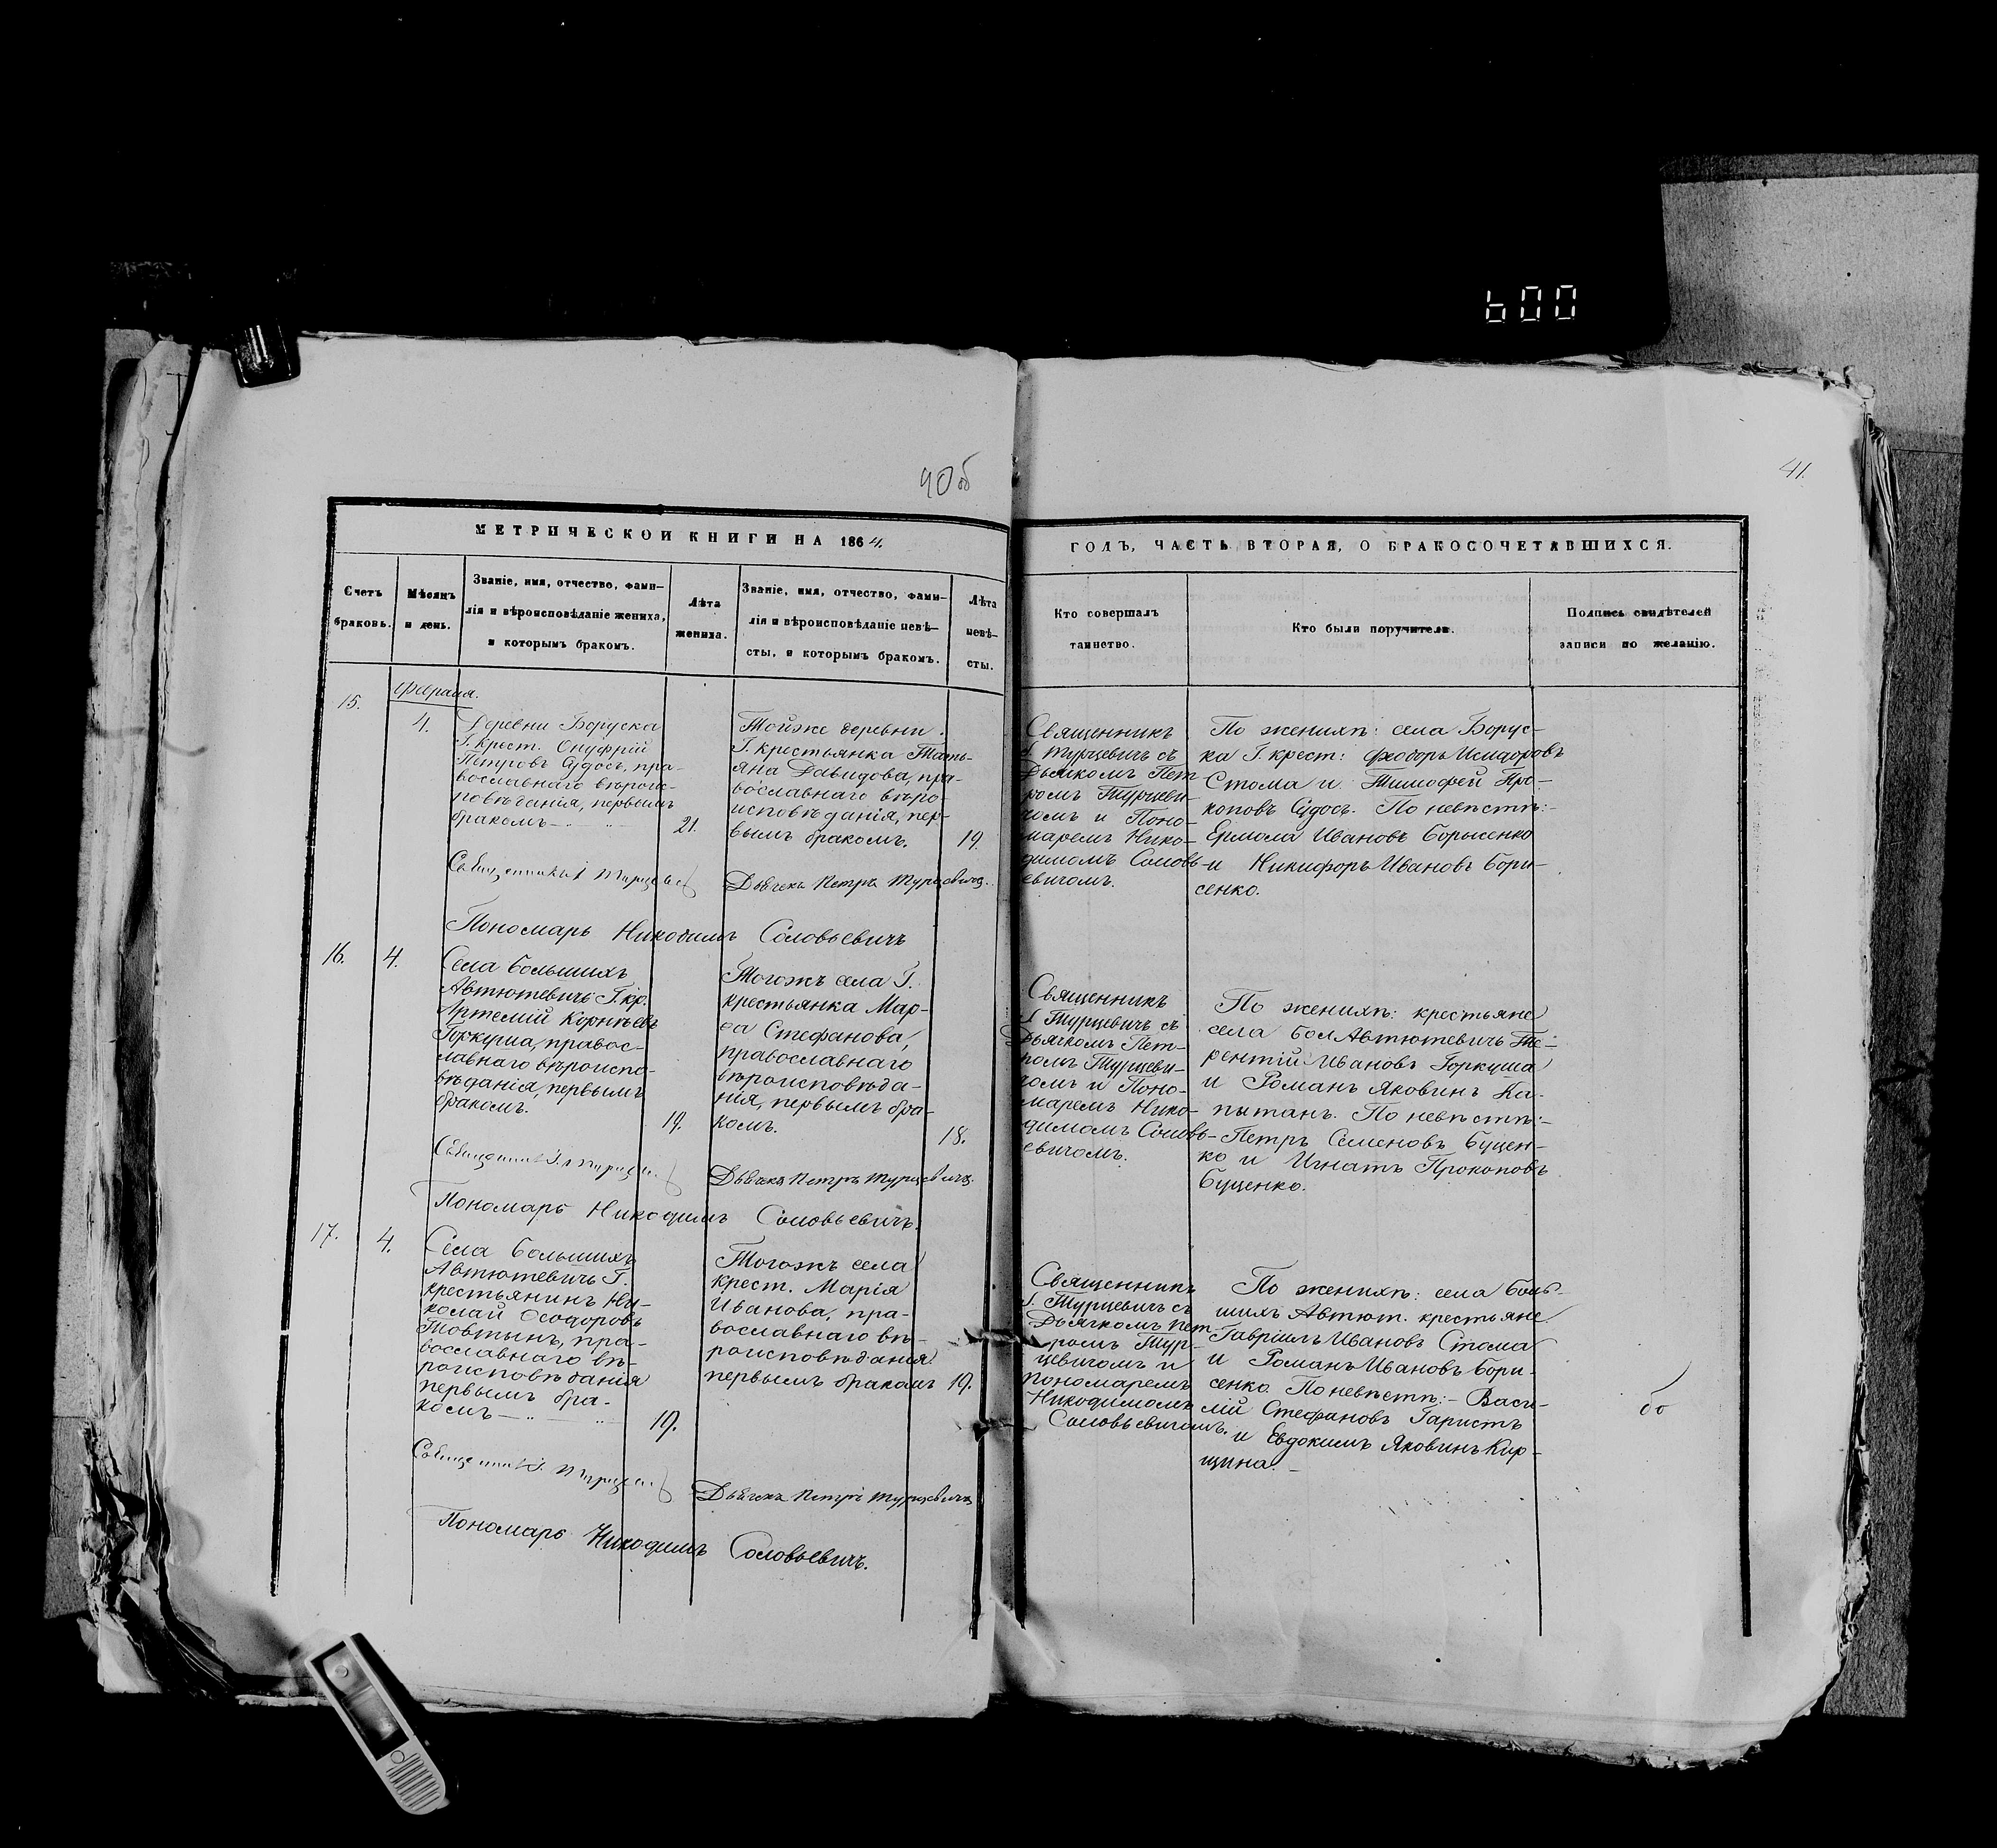 600
40 об
41.
МЕТРИЧЕСКОЙ КНИГИ НА 1864.
ГОДЪ, ЧАСТЬ ВТОРАЯ, О БРАКОСОЧЕТАВШИХСЯ.
Счетъ
браковъ.
Мѣсяцъ
и день.
Званіе, имя, отчество, фами-
лія и вѣроисповѣданіе жениха,
и которымъ бракомъ.
Лѣта
жениха.
Званіе, имя, отчество, фами-
лія и вѣроисповѣданіе невѣ-
сты, и которымъ бракомъ.
Лѣта
невѣ-
сты.
Кто совершалъ
таинство.
Кто были поручители.
Подпись свидѣтелей
записи по желанію.
15.
Февраля.
4.
Деревни Боруска
Г. крест. Онуфрій
Петровъ Судосъ, пра-
вославнаго вѣроис-
повѣданія, первымъ
бракомъ
21.
Тойже деревни
Г. крестьянка Тать-
яна Давидова, пра-
вославнаго вѣро-
исповѣданія, пер-
вымъ бракомъ.
19.
Священникъ
І Турцевичъ съ
Дьячкомъ Пет
ромъ Турцеви-
чомъ и Поно-
маремъ Нико-
димомъ Соловь-
евичомъ.
По женихѣ: села Борус-
ка Г. крест: Феодоръ Исидоровъ
Стома и Тимофей Про-
коповъ Судосъ. По невѣстѣ:-
Ермола Ивановъ Борысенко
и Никифоръ Ивановъ Бори-
сенко.
Дьячекъ Петръ Турцевичъ.
Пономарь Никодимъ Соловьевичъ
16.
4.
Села Большихъ
Автютевичъ Г. кр.
Артемій Корнѣевъ
Горкуша, правос-
лавнаго вѣроиспо-
вѣданія, первымъ
бракомъ.
19.
Тогожъ села Г.
крестьянка Мар-
ѳа Стефанова,
православнаго
вѣроисповѣда-
нія, первымъ бра-
комъ.
18.
Священникъ
І Турцевичъ съ
Дьячкомъ Пет-
ромъ Турцеви-
чомъ и Поно-
маремъ Нико-
димомъ Соловь-
евичомъ.
По женихѣ: крестьяне
села Бол Автютевичъ Те-
рентій Ивановъ Горкуша
и Романъ Яковинъ Ка-
пытанъ. По невѣстѣ:-
Петръ Семеновъ Буцен-
ко и Игнатъ Прокоповъ
Буценко.
Дьячекъ Петръ Турцевичъ.
Пономарь Никодимъ Соловьевичъ.
17.
4.
Села Большихъ
Автютевичъ Г.
крестьянинъ Ни-
колай Ѳеодоровъ
Товтынъ, пра-
вославнаго вѣ-
роисповѣданія
первымъ бра-
комъ
19.
Тогожъ села
крест. Марія
Иванова, пра-
вославнаго вѣ-
роисповѣданія
первымъ бракомъ
19.
Священникъ
І. Турцевичъ съ
Дьячкомъ Пет-
ромъ Тур-
цевичомъ и
пономаремъ
Никодимомъ
Соловьевичомъ.
По женихѣ: села Боль-
шихъ Автют. крестьяне
Гавріилъ Ивановъ Стома
и Романъ Ивановъ Бори-
сенко. По невѣстѣ:- Васи-
лій Стефановъ Гаристъ
и Евдокимъ Яковинъ Кир-
щина.
Дьячекъ Петръ Турцевичъ
Пономарь Никодимъ Соловьевичъ.